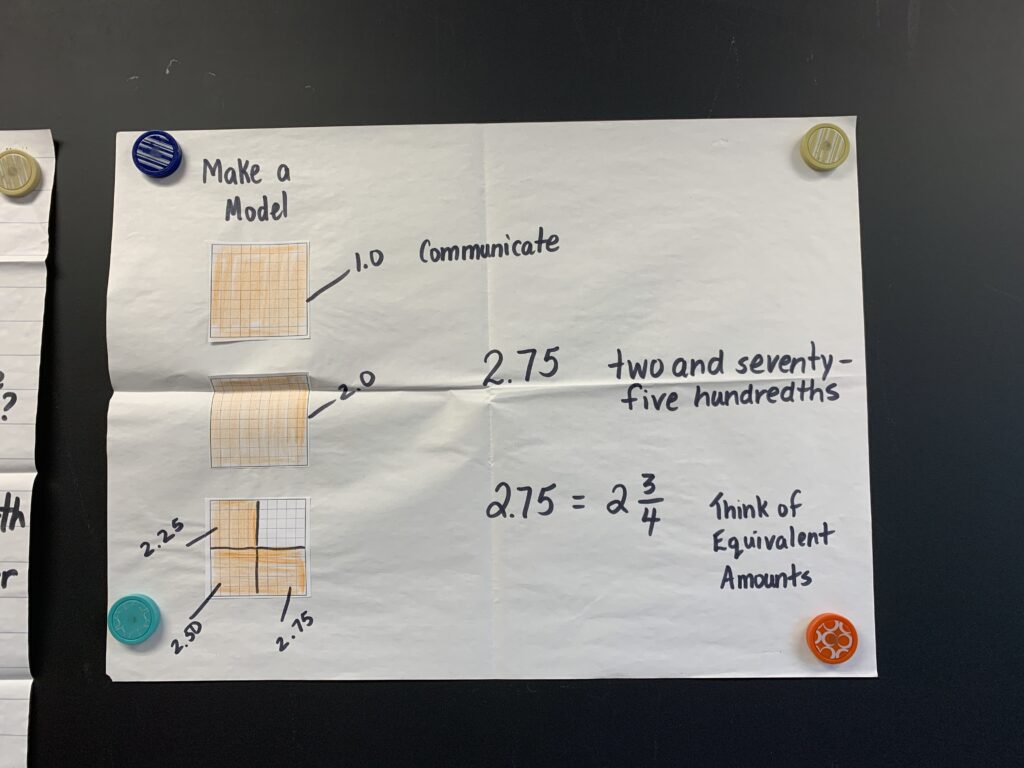 Make a
Model
1.0
Communicate
2.0
2.75
two and seventy-
five hundredths
2.25
2.50
2.75
2.75 = 2 3/4
Think of
Equivalent
Amounts
?
th
r